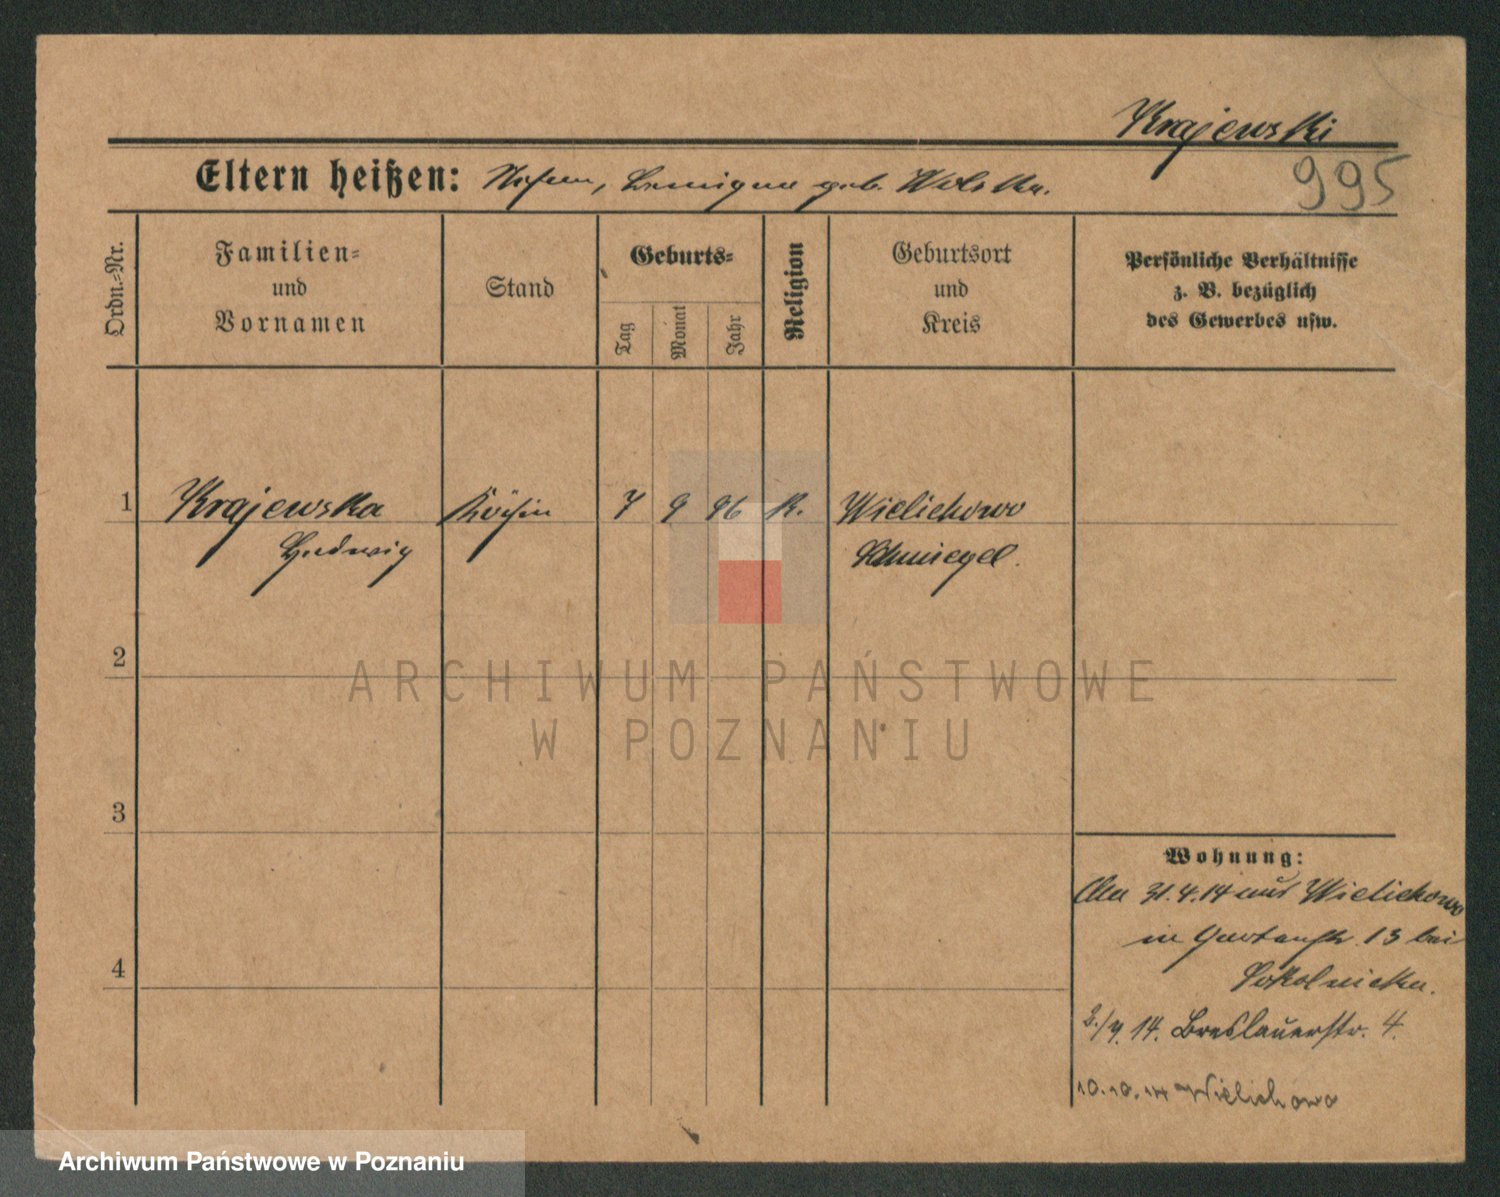 Krajewski
995
Eltern heißen: geb. Wolska.
Ordn.-Nr.
Familien-
und
Vornamen
Stand
Geburts-
Tag
Monat
Jahr
Religion
Geburtsort
und
Kreis
Persönliche Verhältnisse
z. B. bezüglich
des Gewerbes usw.
1 Krajewska Köchin 7 9 96 K. Wielichowo
Hedwig Schmiegel.
2
3
4
Wohnung:
Am 31.4.14 aus Wielichowo
in Gartenstr. 13 bei
Sokolnicka.
2./4. 14. Breslauerstr. 4.
10.10.14 Wielichowo
ARCHIWUM PAŃSTWOWE
W POZNANIU
Archiwum Państwowe w Poznaniu